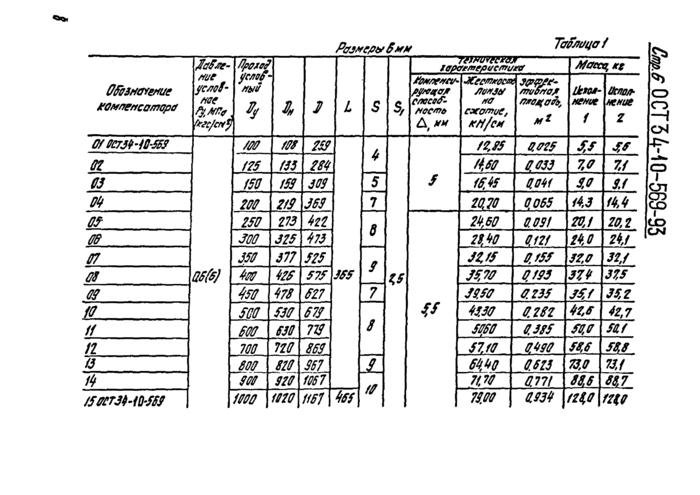 8
Стр. 6 ОСТ 34-10-569-93
Размеры в мм
Таблица 1
Обозначение компенсатора | Давление условное Ру, МПа (кгс/см²) | Проход условный Dу | Dн | D | L | S | S₁ | Техническая характеристика | Масса, кг
Компенсирующая способность Δ, мм | Жесткость линзы на сжатие, кН/см | Эффективная площадь, м² | Исполнение 1 | Исполнение 2
01 ОСТ34-10-569 | 0,6(6) | 100 | 108 | 259 | 365 | 4 | 2,5 | 5 | 12,85 | 0,025 | 5,5 | 5,6
02 | 125 | 133 | 284 | 14,60 | 0,033 | 7,0 | 7,1
03 | 150 | 159 | 309 | 5 | 16,45 | 0,041 | 9,0 | 9,1
04 | 200 | 219 | 369 | 7 | 20,70 | 0,065 | 14,3 | 14,4
05 | 250 | 273 | 422 | 8 | 5,5 | 24,60 | 0,091 | 20,1 | 20,2
06 | 300 | 325 | 473 | 28,40 | 0,121 | 24,0 | 24,1
07 | 350 | 377 | 525 | 9 | 32,15 | 0,155 | 32,0 | 32,1
08 | 400 | 426 | 575 | 35,70 | 0,193 | 37,4 | 37,5
09 | 450 | 478 | 627 | 7 | 39,50 | 0,235 | 35,1 | 35,2
10 | 500 | 530 | 679 | 8 | 43,30 | 0,282 | 42,6 | 42,7
11 | 600 | 630 | 779 | 50,60 | 0,385 | 50,0 | 50,1
12 | 700 | 720 | 869 | 57,10 | 0,490 | 58,6 | 58,8
13 | 800 | 820 | 967 | 9 | 64,40 | 0,623 | 73,0 | 73,1
14 | 900 | 920 | 1067 | 10 | 71,70 | 0,771 | 88,6 | 88,7
15 ОСТ34-10-569 | 1000 | 1020 | 1167 | 465 | 79,00 | 0,934 | 128,0 | 128,0